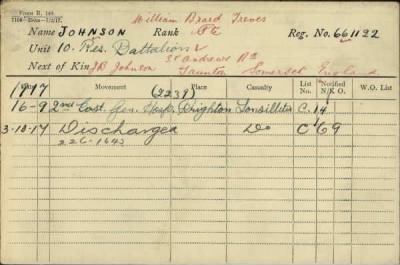 Form R. 149.
William Beard Treves
Name JOHNSON Rank Pte Reg. No. 661122
Unit 10. Res. Battalion
St Andrews Rd
Next of Kin J B Johnson Taunton Somerset England
1917 Movement (2239) Place Casualty List No. Notified N/K.O. W.O. List
16-9 2nd East. Gen. Hosp. Brighton Tonsillitis C. 14
3-10-17 Discharged Do C 69
226-1643